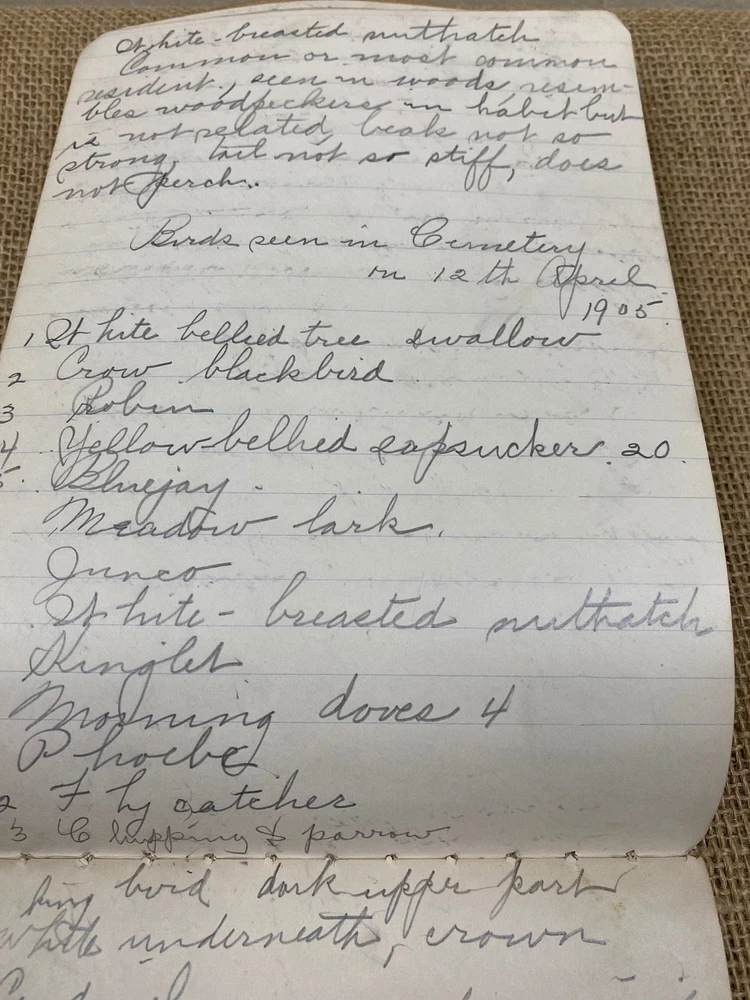 White-breasted nuthatch
Common or most common
resident, seen in woods, resem-
bles woodpeckers in habit but
is not related, beak not so
strong, tail not so stiff, does
not perch.
Birds seen in Cemetery
on 12th April
1905.
1 White bellied tree swallow
2 Crow blackbird
3 Robin
4 Yellow-bellied sapsucker. 20.
5. Bluejay.
Meadow lark.
Junco
White-breasted nuthatch
Kinglet
Morning doves 4
Phoebe
2 Fly catcher
3 Chipping Sparrow
bird dark upper part
white underneath, crown